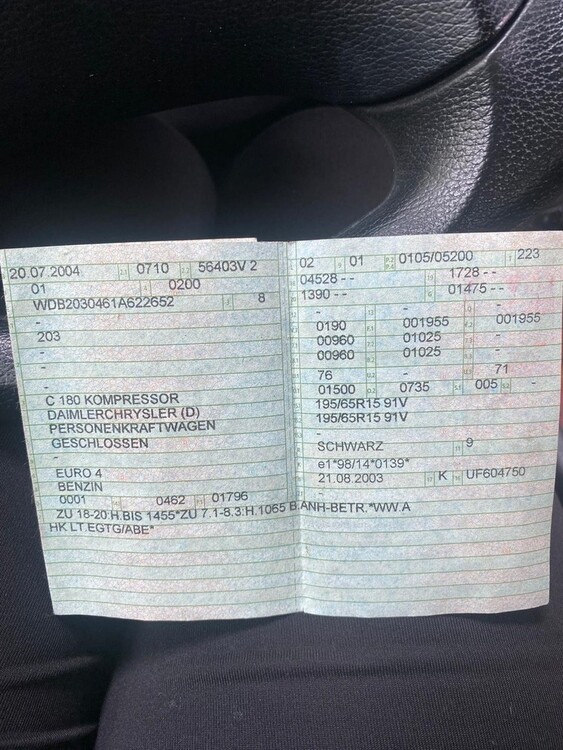 20.07.2004 0710 56403V 2
01 0200
WDB2030461A622652 8
-
203
-
-
-
C 180 KOMPRESSOR
DAIMLERCHRYSLER (D)
PERSONENKRAFTWAGEN
GESCHLOSSEN
-
EURO 4
BENZIN
0001 0462 01796
ZU 18-20:H.BIS 1455*ZU 7.1-8.3:H.1065 B.ANH-BETR.*WW.A
HK LT.EGTG/ABE*
02 01 0105/05200 223
04528 - - 1728 - -
1390 - - 01475 - -
- - -
0190 001955 001955
00960 01025 -
00960 01025 -
76 - 71
01500 0735 005 -
195/65R15 91V
195/65R15 91V
-
SCHWARZ 9
e1*98/14*0139*
21.08.2003 K UF604750
-